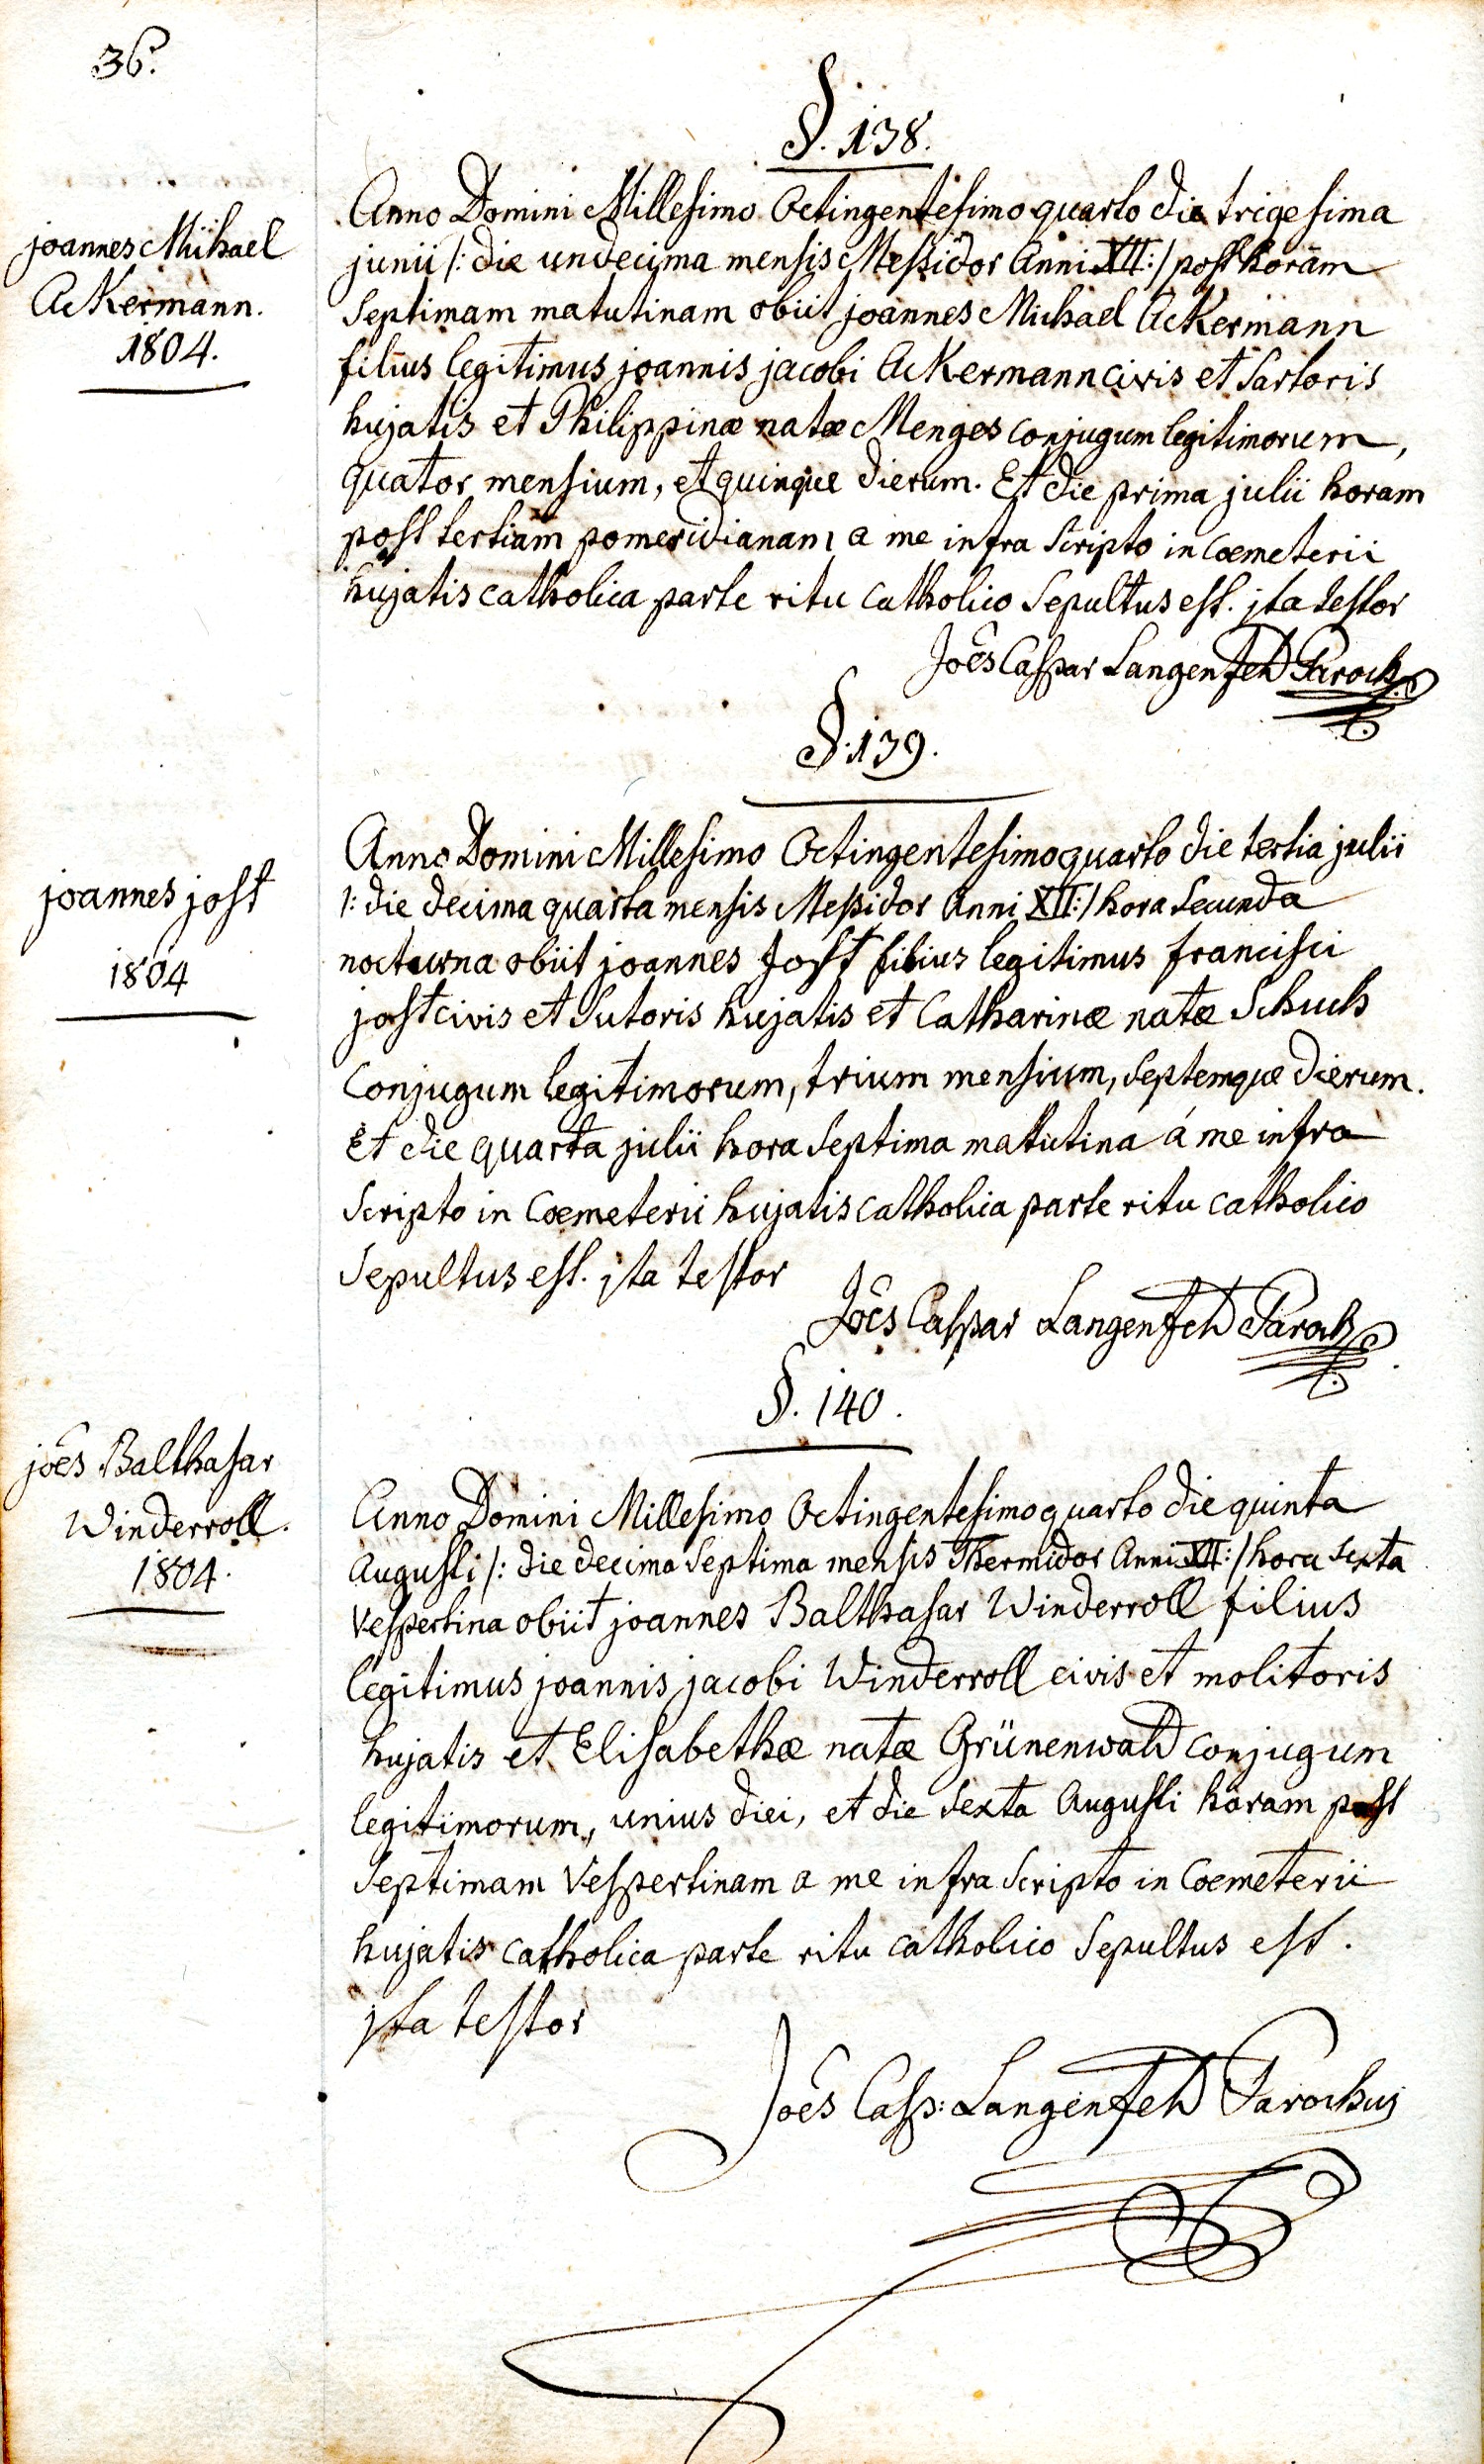 36.
§. 138.
joannes Michael
Ackermann.
1804.
Anno Domini Millesimo Octingentesimo quarto die trigesima
junii /: die undecima mensis Messidor Anni XII :/ post horam
Septimam matutinam obiit joannes Michael Ackermann
filius legitimus joannis jacobi Ackermann civis et Sartoris
hujatis et Philippinæ natæ Menges conjugum legitimorum,
quator mensium, et quinque dierum. Et die prima julii horam
post tertiam pomeridianam a me infra Scripto in Coemeterii
hujatis catholica parte ritu catholico Sepultus est. jta testor
Joēs Caspar Langenfeld Paroch.
§. 139.
joannes jost
1804
Anno Domini Millesimo Octingentesimo quarto die tertia julii
/: die decima quarta mensis Messidor Anni XII :/ hora Secunda
nocturna obiit joannes Jost filius legitimus francisci
jost civis et Sutoris hujatis et Catharinæ natæ Schuch
Conjugum legitimorum, trium mensium, septemque dierum.
Et die quarta julii hora Septima matutina á me infra
Scripto in Coemeterii hujatis catholica parte ritu catholico
Sepultus est. jta testor
Joēs Caspar Langenfeld Paroch
§. 140.
joēs Balthasar
Winderroll.
1804.
Anno Domini Millesimo Octingentesimo quarto die quinta
Augusti /: die decima Septima mensis Thermidor Anni XII :/ hora Sexta
Vespertina obiit joannes Balthasar Winderroll filius
legitimus joannis jacobi Winderroll civis et molitoris
hujatis et Elisabethæ natæ Grünenwald conjugum
legitimorum, unius diei, et die Sexta Augusti horam post
Septimam Vespertinam a me infra Scripto in Coemeterii
hujatis catholica parte ritu catholico Sepultus est.
jta testor
Joēs Casp: Langenfeld Parochus